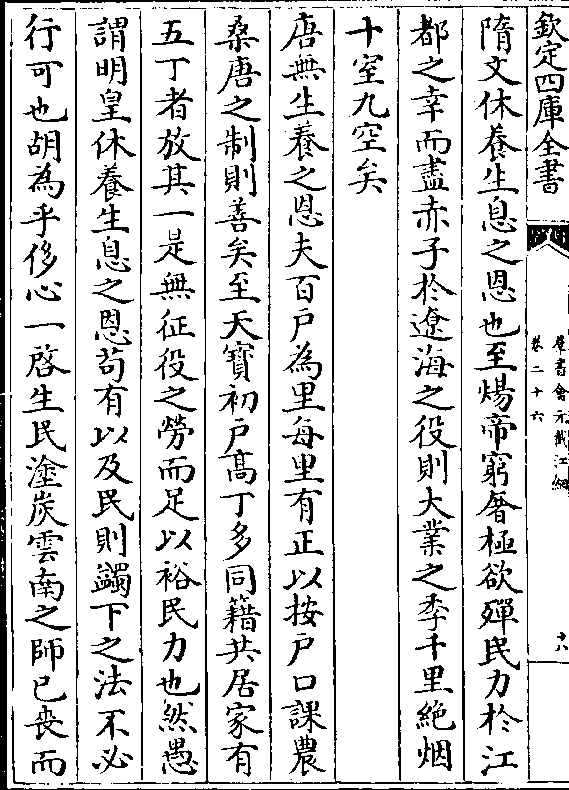 欽定四庫全書
羣書會元截江網
卷二十六
十八
隋文休養生息之恩也至煬帝窮奢極欲殫民力於江
都之幸而盡赤子於遼海之役則大業之季千里絶烟
十室九空矣
唐無生養之恩夫百戸為里每里有正以按戸口課農
桑唐之制則善矣至天寳初戸髙丁多同籍共居家有
五丁者放其一是無征役之勞而足以裕民力也然愚
謂明皇休養生息之恩苟有以及民則蠲下之法不必
行可也胡為乎侈心一啓生民塗炭雲南之師已喪而